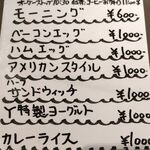 モーニング ¥600
ベーコンエッグ ¥1000
ハムエッグ ¥1000
アメリカンスタイル ¥1000
ハーフ
サンドウィッチ ¥1000
特製ヨーグルト ¥1000
カレーライス ¥1000